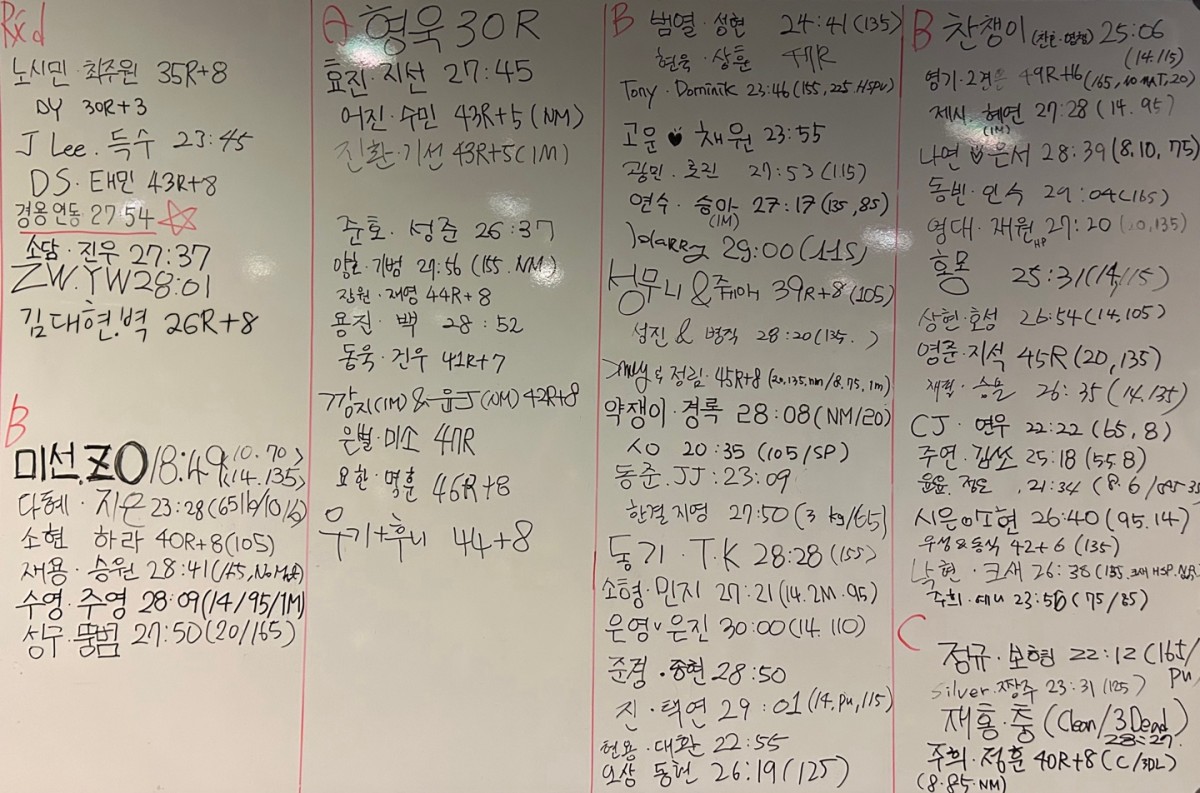 Rx'd
노시민·최주원 35R+8
DY 30R+3
J Lee. 득수 23:45
DS·태민 43R+8
경용연동 27:54
소담·진우 27:37
ZW.YW 28:01
김대현.벽 26R+8
B
미선.ZO 18:49 (10.70)
(14.135)
다혜·지은 23:28(65lb/10lb)
소현 하라 40R+8(105)
재용·승원 28:41
수영·주영 28:09(14/95/1M)
성구·뚱범 27:50(20/165)
A 형욱 30R
효진·지선 27:45
어진·수민 43R+5(NM)
진환·기선 43R+5(1M)
준호·성준 26:37
기범 27:56 (155.NM)
재영 44R+8
용진·백 28:52
동욱·건우 41R+7
깜지(1M)&윤J(NM) 42R+8
은별·미소 47R
요환·명훈 46R+8
우기+후니 44+8
B 범열·성현 24:41(135)
현욱·상훈 47R
Tony·Dominik 23:46(155,225.HSPU)
고운♥채원 23:55
광민.로진 27:53(115)
연수·승아 27:17(135,85)
(1M)
Harry 29:00(115)
성무니&쥐아 39R+8(105)
성진&병직 28:20(135. )
정림·45R+8(20,135.nm/8.75.1m)
약쟁이·경록 28:08(NM/20)
SO 20:35(105/SP)
동준.JJ:23:09
한결지영 27:50(3kg/65)
동기·T.K 28:28(155)
소형·민지 27:21(14.2M.95)
은영v은진 30:00(14.110)
준경·종현 28:50
진·택연 29:01(14.pu,115)
현용·대환 22:55
동현 26:19(125)
B 찬쟁이 25:06
(14.115)
영기·2견은 49R+16(165,20)
제시·혜연 27:28(14.95)
(1M)
나연♥은서 28:39(8.10,75)
동빈·인수 29:04(165)
영대·재원 27:20(20,135)
HP
홍몽 25:31(14,115)
상현·호성 26:54(14.105)
영준·지석 45R(20,135)
26:35(14.135)
CJ·연우 22:22(65,8)
주연·김쏘 25:18(55.8)
21:34
시은이소현 26:40(95.14)
우성&동식 42+6(135)
낙현·크새 26:38
주희·태니 23:56(75/85)
C 정규·보형 22:12(165/
PU)
silver·짱주 23:31(125)
재홍·충(Clean/3Dead)
28:27
주희·정훈 40R+8(C/3DL)
(8·85·NM)